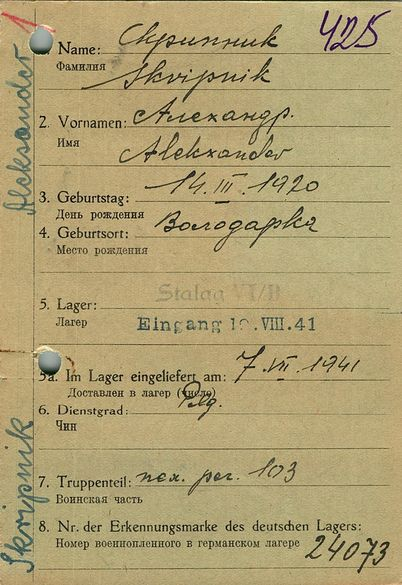 425
1. Name: Скрипник
Фамилия Skripnik
2. Vornamen: Александр.
Имя Alekxander
3. Geburtstag: 14.III.1920
День рождения
4. Geburtsort: Володарка
Место рождения
Stalag VI/B
5. Lager:
Лагер Eingang 10.VIII.41
5a. Im Lager eingeliefert am: 7.VII.1941
Доставлен в лагер (число)
6. Dienstgrad:
Чин
7. Truppenteil: пех. рег. 103
Воинская часть
8. Nr. der Erkennungsmarke des deutschen Lagers:
Номер военнопленного в германском лагере 24073
Skripnik Aleksander